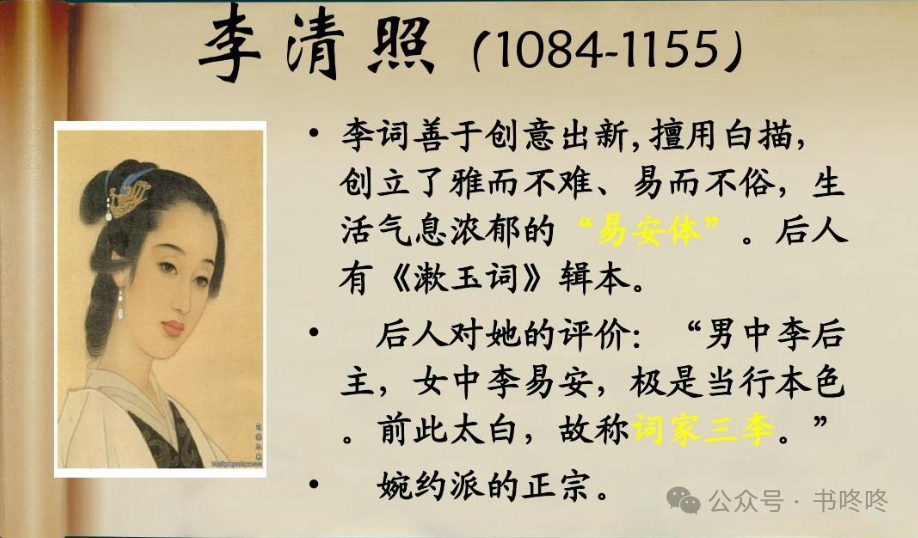 李清照（1084-1155）
• 李词善于创意出新,擅用白描，
创立了雅而不难、易而不俗，生
活气息浓郁的“易安体”。后人
有《漱玉词》辑本。
• 后人对她的评价：“男中李后
主，女中李易安，极是当行本色
。前此太白，故称词家三李。”
• 婉约派的正宗。
公众号·书咚咚